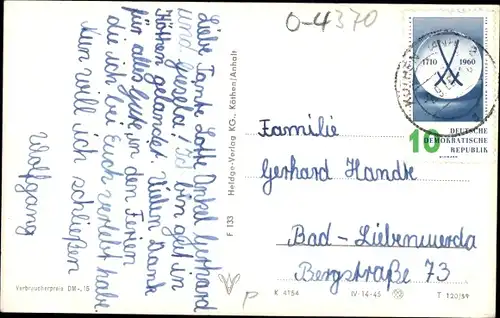 O-4370
Liebe Tante Lotte Onkel Gerhard
und Gisela! Ich bin gut in
Köthen gelandet. Vielen Dank
für alles Gute, in den Ferien
die ich bei Euch verlebt habe.
Nun will ich schließen
Wolfgang
Verbraucherpreis DM -,15
F 133 Heldge-Verlag KG., Köthen/Anhalt
1710 1960
10
DEUTSCHE
DEMOKRATISCHE
REPUBLIK
Familie
Gerhard Handke
Bad-Liebenwerda
Bergstraße 73
P
K 4154 IV-14-45 T 120/59